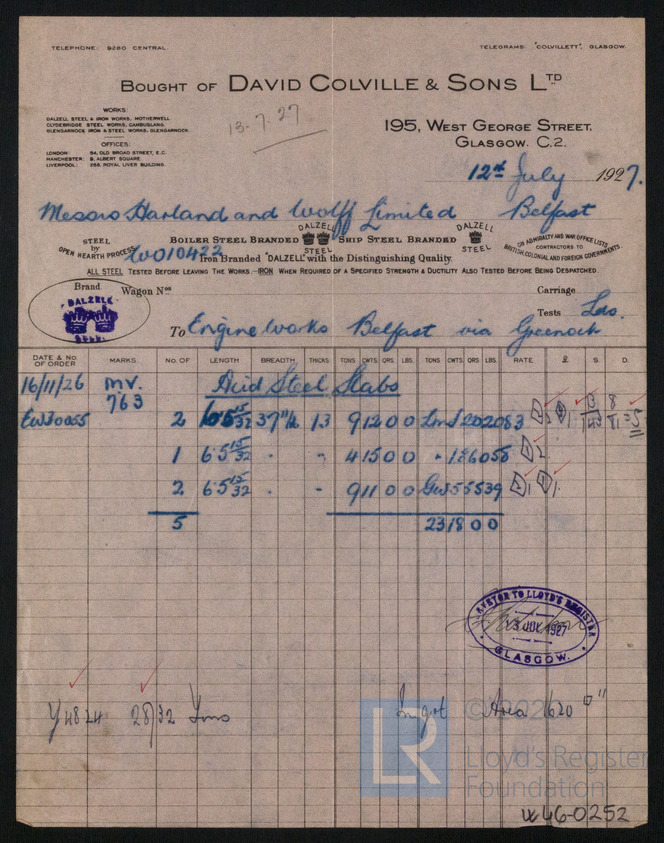 TELEPHONE: 9280 CENTRAL.
TELEGRAMS: "COLVILLETT", GLASGOW.
BOUGHT OF DAVID COLVILLE & SONS LTD
13.7.27
WORKS
DALZELL STEEL & IRON WORKS, MOTHERWELL
CLYDEBRIDGE STEEL WORKS, CAMBUSLANG.
GLENGARNOCK IRON & STEEL WORKS, GLENGARNOCK.
OFFICES:
LONDON: 54, OLD BROAD STREET, E.C.
MANCHESTER: 9, ALBERT SQUARE.
LIVERPOOL: 268, ROYAL LIVER BUILDING.
195, WEST GEORGE STREET,
GLASGOW. C.2.
12th July 1927.
Messrs Harland and Wolff Limited Belfast
STEEL BY OPEN HEARTH PROCESS
BOILER STEEL BRANDED DALZELL STEEL SHIP STEEL BRANDED DALZELL STEEL
ON ADMIRALTY AND WAR OFFICE LISTS
CONTRACTORS TO
BRITISH, COLONIAL AND FOREIGN GOVERNMENTS.
WO10422
Iron Branded "DALZELL" with the Distinguishing Quality.
ALL STEEL TESTED BEFORE LEAVING THE WORKS.—IRON WHEN REQUIRED OF A SPECIFIED STRENGTH & DUCTILITY ALSO TESTED BEFORE BEING DESPATCHED.
Brand
DALZELL
STEEL
Wagon Nos
Carriage
Tests
To Engineworks Belfast via Greenock
DATE & No. OF ORDER MARKS. No. OF LENGTH BREADTH. THICKS TONS CWTS. QRS. LBS. TONS CWTS. QRS. LBS. RATE £ S D.
16/11/26 MV. Acid Steel Slabs
763
2 13 9 12 0 0 202083
1 6 5 15/32 " " 4 15 0 0 " 186058
2 6 5 15/32 " " 9 11 0 0 GW55539
5 23 18 0 0
SURVEYOR TO LLOYD'S REGISTER
13 JUL 1927
GLASGOW.
Y4824 28/32 Tons Ingot Area 1620 □"
LR
Lloyd's Register
Foundation
W46-0252